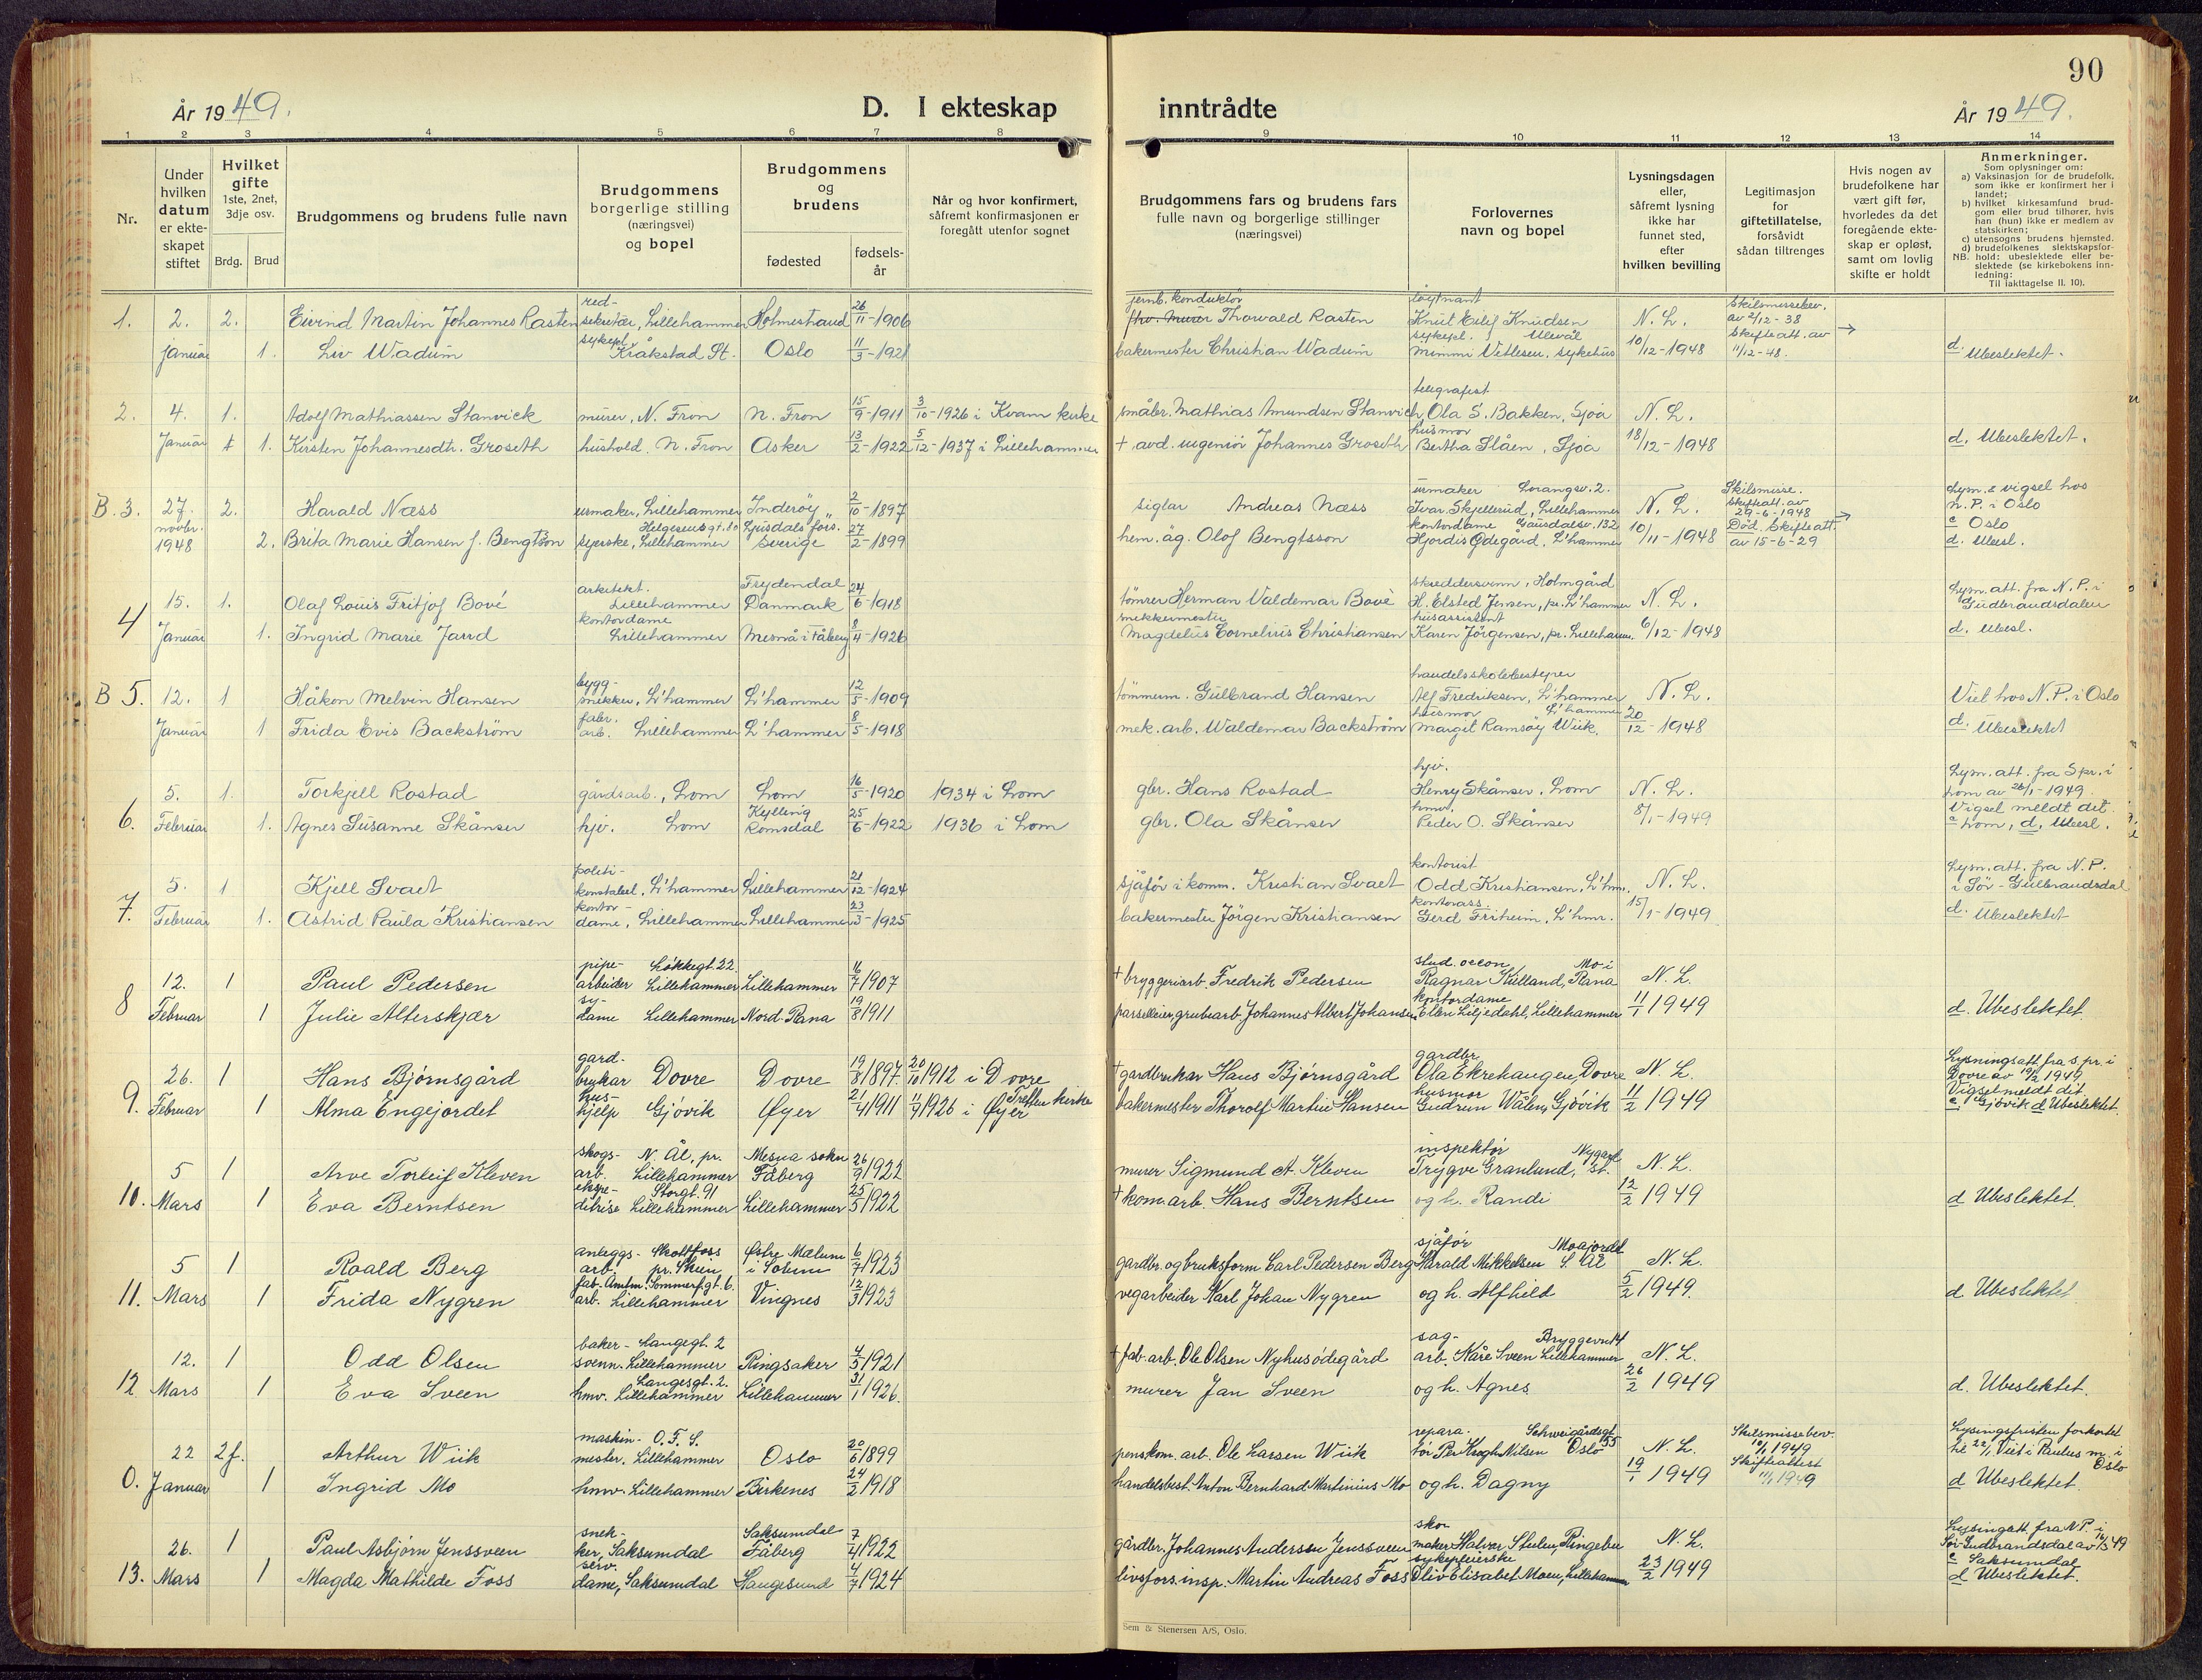 90
År 1949.
D. I ekteskap inntrådte
År 1949.
1 2 3 4 5 6 7 8 9 10 11 12 13 14
Nr.
Under hvilken datum er ekteskapet stiftet
Hvilket gifte 1ste, 2net, 3dje osv.
Brdg. Brud
Brudgommens og brudens fulle navn
Brudgommens borgerlige stilling (næringsvei) og bopel
Brudgommens og brudens
fødested
fødsels-år
Når og hvor konfirmert, såfremt konfirmasjonen er foregått utenfor sognet
Brudgommens fars og brudens fars fulle navn og borgerlige stillinger (næringsvei)
Forlovernes navn og bopel
Lysningsdagen eller, såfremt lysning ikke har funnet sted, efter hvilken bevilling
Legitimasjon for giftetillatelse, forsåvidt sådan tiltrenges
Hvis nogen av brudefolkene har vært gift før, hvorledes da det foregående ekteskap er opløst, samt om lovlig skifte er holdt
Anmerkninger.
Som oplysninger om:
a) Vaksinasjon for de brudefolk, som ikke er konfirmert her i landet;
b) hvilket kirkesamfund brudgom eller brud tilhører, hvis han (hun) ikke er medlem av statskirken;
c) utensogns brudens hjemsted.
d) brudefolkenes slektskapsforhold: ubeslektede eller beslektede (se kirkebokens innledning:
NB. Til iakttagelse II. 10).
1. 2. januar 2. Eivind Martin Johannes Rasten red-sekretær, Lillehammer Holmestrand 26/11-1906 jernb. konduktør Thorvald Rasten løytnant Knut Eilif Knudsen N. L. Skilsmissebev. av 2/12-38
1. Liv Wadum sykepl. Kråkstad St. Oslo 11/3-1921 bakermester Christian Wadum sykepl. Ullevål Mimmi Vetlesen, sykehus 10/12-1948 Skifteatt. av 11/12-48. d. Ubeslektet.
2. 4. Januar 1. Adolf Mathiassen Stanvick murer, N. Fron N. Fron 15/9-1911 3/10-1926 i Kvam kirke småbr. Mathias Amundsen Stanvick telegrafest Ola S. Bakken, Sjoa N. L.
1. Kirsten Johannesdtr. Groseth hushold. N. Fron Asker 13/2-1922 5/12-1937 i Lillehammer + avd. ingeniør Johannes Groseth husmor Bertha Slåen, Sjoa 18/12-1948 d. Ubeslektet.
B. 3. 27. novbr. 1948 2. Harald Næss urmaker, Lillehammer Inderøy 2/10-1897 siglar Andreas Næss urmaker Lorangsv. 2. Ivar Skjellerud, Lillehammer N. L. Skilsmisse. Skifteatt. av 29-6-1948 Lysn. & vigsel hos N. P. i Oslo
2. Brita Marie Hansen f. Bengtson Helgesensgt. 80 syerske, Lillehammer Ljusdals fors. Sverige 27/2-1899 hem. äg. Olof Bengtsson kontordame Gausdalsv. 132 Hjördis Ødegård, L'hammer 10/11-1948 Död. Skifteatt. av 15-6-29 c Oslo d. Ubesl.
4 15. Januar 1. Olaf Louis Fritjof Bové arkitekt. Lillehammer Frydendal Danmark 24/6-1918 tömrer Herman Valdemar Bovè skreddersvenn, Holmgård H. Elsted Jensen, pr. L'hammer N. L. Lysn. att. fra N. P. i Gudbrandsdalen
1. Ingrid Marie Jarrd kontordame Lillehammer Mesnå i Fåberg 8/4-1926 snekkermester Magdelus Cornelius Christiansen husassistent Karen Jörgensen, pr. Lilleham. 6/12-1948 d. Ubesl.
B 5. 12. Januar 1 Håkon Melvin Hansen bygg-snekker, L'hammer L'hammer 12/5-1909 tömmerm. Gulbrand Hansen handelsskolebestyrer Alf Fredriksen, L'hammer N. L. Viet hos N. P. i Oslo
1 Frida Evis Backström fabr. arb. Lillehammer L'hammer 8/5-1918 mek. arb. Waldemar Backström husmor L'hammer Margit Ramsöy Wiik. 20/12-1948 d. Ubeslektet
6. 5. Februar 1. Torkjell Rostad gårdsarb., Lom Lom 16/5-1920 1934 i Lom gbr. Hans Rostad hjv. Henry Skånser, Lom N. L. Lysn. att. fra Spr. i Lom av 26/1-1949.
1. Agnes Susanne Skånser hjv. Lom Kylling Romsdal 25/6-1922 1936 i Lom gbr. Ola Skånser hmv. Peder O. Skånser 8/1-1949 Vigsel meldt dit. c Lom, d. Ubesl.
7. 5. Februar 1 Kjell Svaet politi-konstabel, L'hammer Lillehammer 21/12-1924 sjåför i komm. Kristian Svaet kontorist Odd Kristiansen, L'hm. N. L. Lysn. att. fra N. P. i Sör-Gudbrandsdal
1. Astrid Paula Kristiansen kontor-dame, Lillehammer Lillehammer 23/3-1925 bakermester Jörgen Kristiansen kontorass. Gerd Friheim, L'hmr. 15/1-1949 d. Ubeslektet
8 12. Februar 1 Paul Pedersen pipe-arbeider Løkkegt. 22 Lillehammer Lillehammer 16/7 1907 + bryggeriarb. Fredrik Pedersen stud. oecon. Mo i Ragnar Kulland, Rana N. L.
1 Julie Alterskjær sy-dame Lillehammer Nord-Rana 19/8 1911 parselleier, grubearb. Johannes Albert Johansen kontordame Ellen Liljedahl, Lillehammer 11/1 1949 d. Ubeslektet.
9. 26. Februar 1 Hans Bjørnsgård gard-brukar Dovre Dovre 19/8 1897 20/10 1912 i Dovre + gardbrukar Hans Bjørnsgård gardbr. Ola Ekrehaugen, Dovre N. L. Lysningsatt. fra s. pr. i Dovre av 19/2 1949.
1 Alma Engejordet hus-hjelp Gjøvik Øyer 21/4 1911 11/9 1926 i Øyer Tretten kirke bakermester Thorolf Martin Hansen husmor Gudrun Wålen, Gjøvik 11/2 1949 Vigsel meldt dit. c Gjøvik d Ubeslektet.
10. 5 Mars 1 Arve Torleif Kleven skogs-arb. N. Ål, pr. Lillehammer Mesna sokn Fåberg 26/9 1922 murer Sigmund A. Kleven inspektør Nygart. Trygve Granlund, st. N. L.
1 Eva Berntsen ekspe-ditrise Storgt. 91 Lillehammer Lillehammer 25/5 1922 + kom. arb. Hans Berntsen og h. Randi 12/2 1949 d Ubeslektet.
11. 5 Mars 1 Roald Berg anleggs-arb. Skotfoss pr. Skien Østre Mælum i Solum 6/7 1923 gardbr. og bruksform. Carl Pedersen Berg sjåfør Moajordet Harald Mikkelsen S. Ål N. L.
1 Frida Nygren fab. arb. Amtm. Sommerf. gt. 6. Lillehammer Vingnes 12/3 1923 vegarbeider Karl Johan Nygren og h. Alfhild 5/2 1949. d Ubeslektet.
12 12. Mars 1 Odd Olsen baker-svenn. Langegt. 2 Lillehammer Ringsaker 4/5 1921 + fab. arb. Ole Olsen Nyhusødegård sag-arb. Bryggevn 14 Kåre Sveen Lillehammer N. L.
1 Eva Sveen hmv. Langesgt. 2. Lillehammer Lillehammer 31/1 1926. murer Jan Sveen og h. Agnes 26/2 1949 d. Ubeslektet.
0. 22 Januar 2 f. Arthur Wiik maskin-mester. O. F. S. Lillehammer Oslo 20/6 1899 pens. kom. arb. Ole Larsen Wiik repara-tør Schweigårdsgt. 55 Per Krogh Nilsen Oslo N. L. Skilsmissebev. 10/1 1949 Lysingsfristen forkortet til 22/1. Viet i Paulus m. i Oslo
1 Ingrid Mo hmv. Lillehammer Birkenes 24/2 1918 handelsbest. Anton Bernhard Martinius Mo og h. Dagny 19/1 1949 Skifteattest 11/1 1949 d Ubeslektet.
13. 26. Mars 1 Paul Asbjørn Jenssveen snek-ker, Saksumdal Saksumdal Fåberg 7/4 1922 gårdbr. Johannes Anderssen Jenssveen skomaker Halvor Stulen, Ringebu N. L. Lysingatt. fra N. P. i Sør-Gudbrandsdal av 16/3 49
1 Magda Mathilde Foss serv. dame, Saksumdal Haugesund 4/7 1924 livsfors. insp. Martin Andreas Foss sykepleierske Oliv Elisabet Moen, Lillehammer 23/2 1949 c Saksumdal d Ubeslektet.
Sem & Stenersen A/S, Oslo.